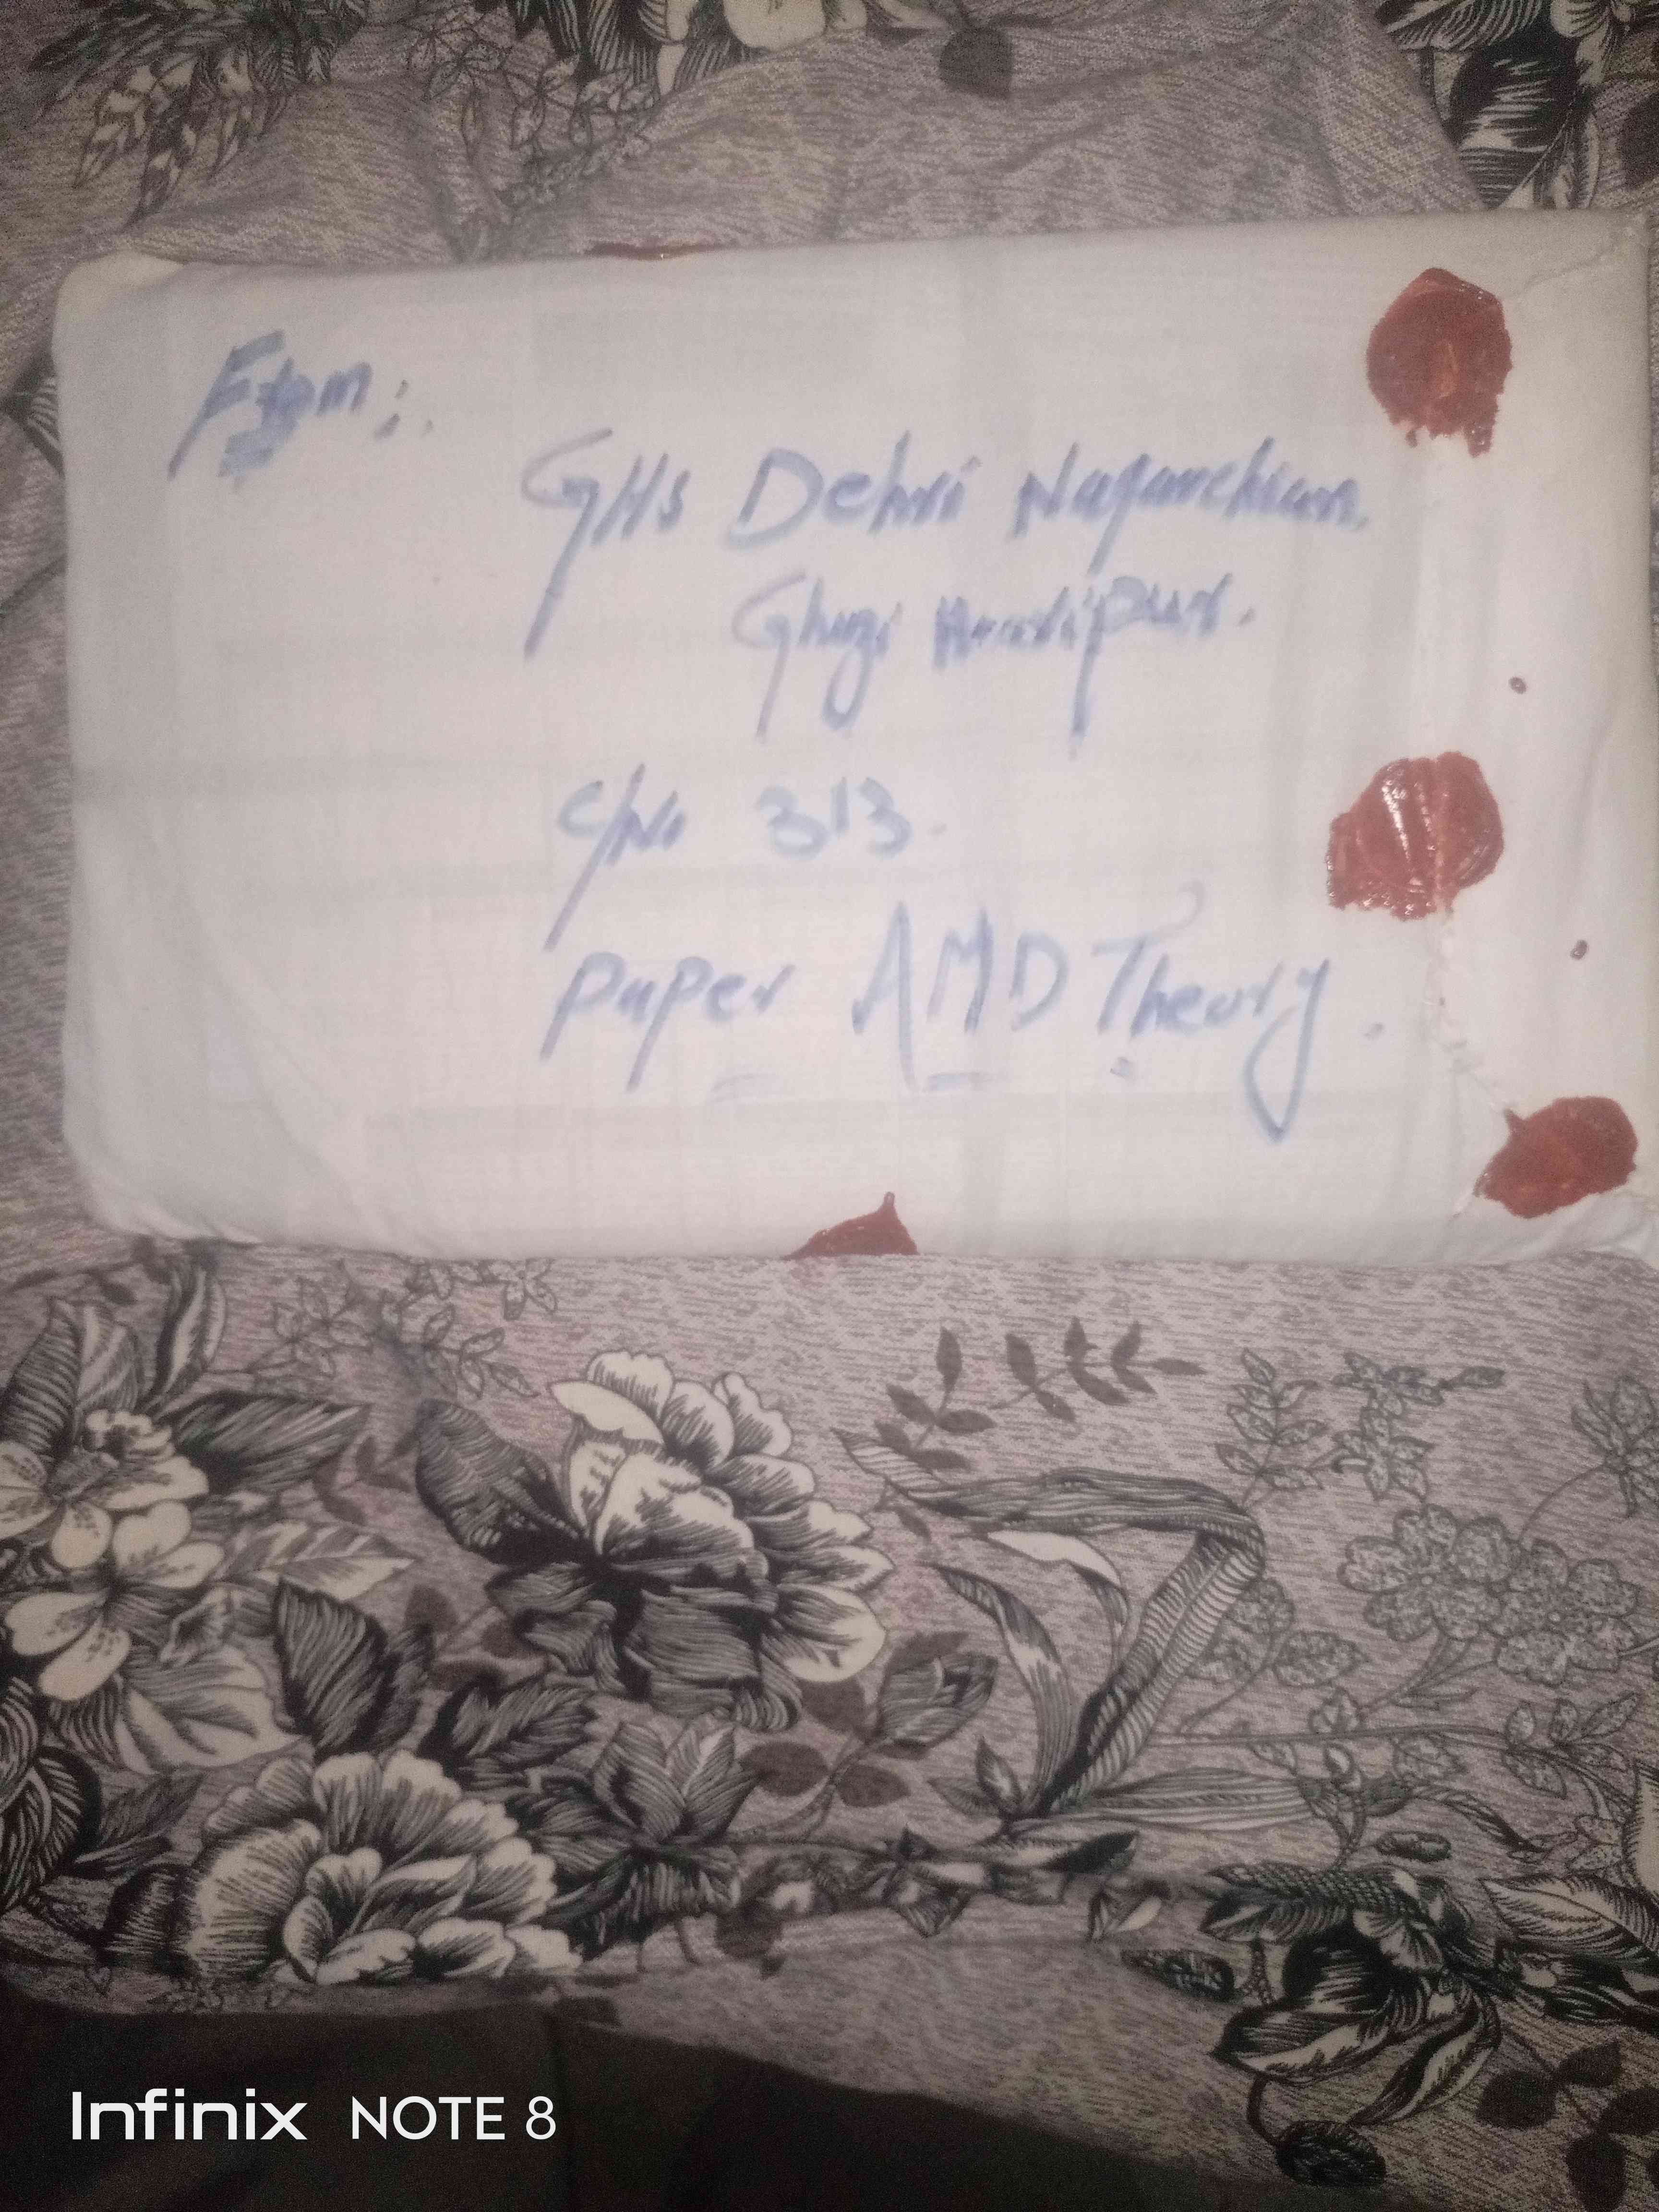 From:
GHS Dehri Nagarchian.
Ghazi Haripur.
C/No 313
Paper AMD Theory.
Infinix NOTE 8